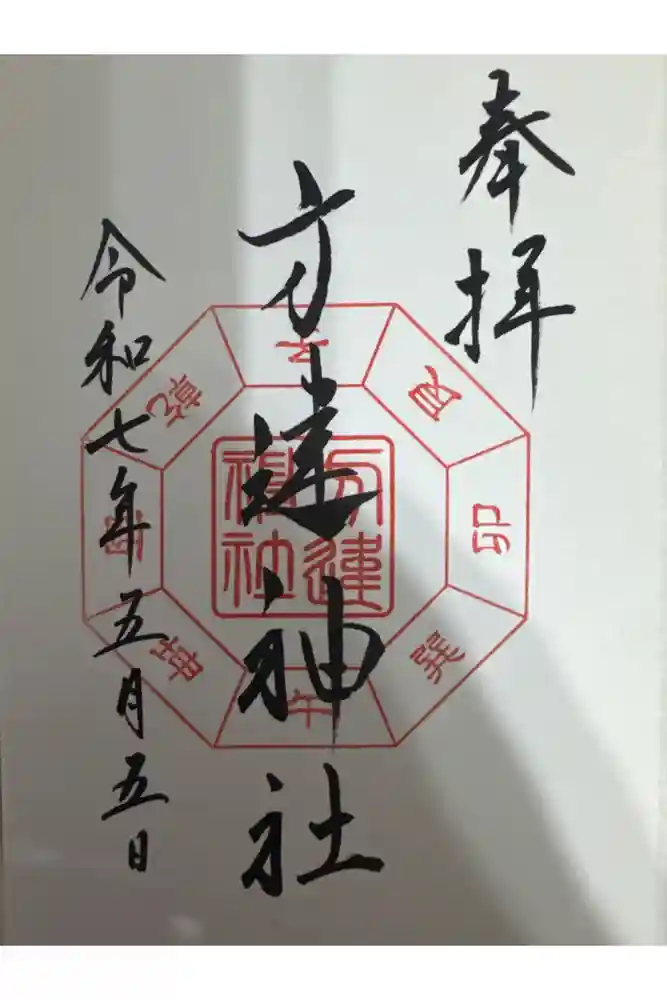 奉拝
方違神社
令和七年五月五日
方違
神社
艮
卯
巽
午
坤
乾